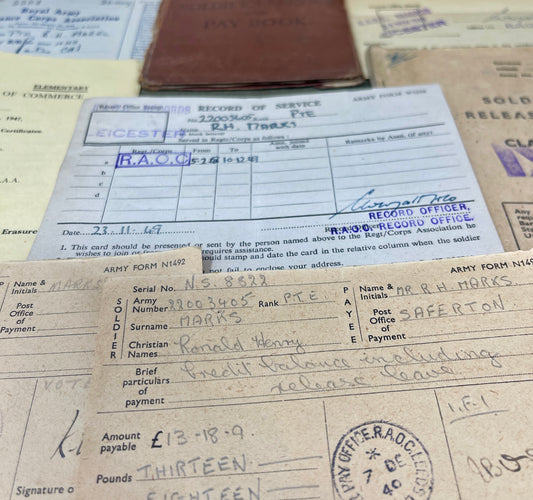 Royal Army
Corps Association
SOLDIER'S
PAY BOOK
ELEMENTARY
OF COMMERCE
1947,
Certificates.
A.A.
Erasure
ARMY FORM
RECORD OF SERVICE
No. 22003405 Rank PTE
Name R.H. MARKS
Served in Regt/Corps as follows:
LEICESTER
Regt./Corps From To Remarks by Assn. (if any)
a R.A.O.C. 10.12.49
b
c
d
RECORD OFFICER,
R.A.O.C. RECORD OFFICE.
Date 23.11.49
1. This card should be presented or sent by the person named above to the Regt/Corps Association he
wishes to join or requires assistance.
should stamp and date the card in the relative column when the soldier
not fail to enclose your address.
SOLD
RELEAS
CLA
ARMY FORM N1492
Name & Initials MARKS
Post Office of Payment
Signature o
ARMY FORM N1492
Serial No. N.S. 8322
SOLDIER
Army Number 22003405 Rank PTE.
Surname MARKS
Christian Names Ronald Henry
PAYEE
Name & Initials MR R.H. MARKS.
Post Office of Payment SAFERTON
Brief particulars of payment Credit balance including
release leave
Amount payable £13-18-9.
Pounds THIRTEEN
EIGHTEEN
PAY OFFICE. R.A.O.C. LEEDS
7 DE